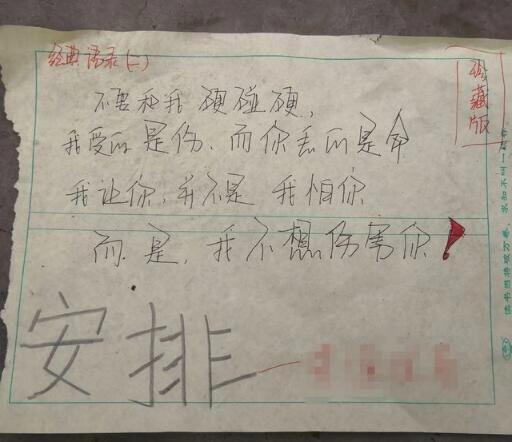 经典语录(一)
珍藏版
不要和我硬碰硬,
我受的是伤、而你丢的是命
我让你,并不是我怕你
而是,我不想伤害你!
安排